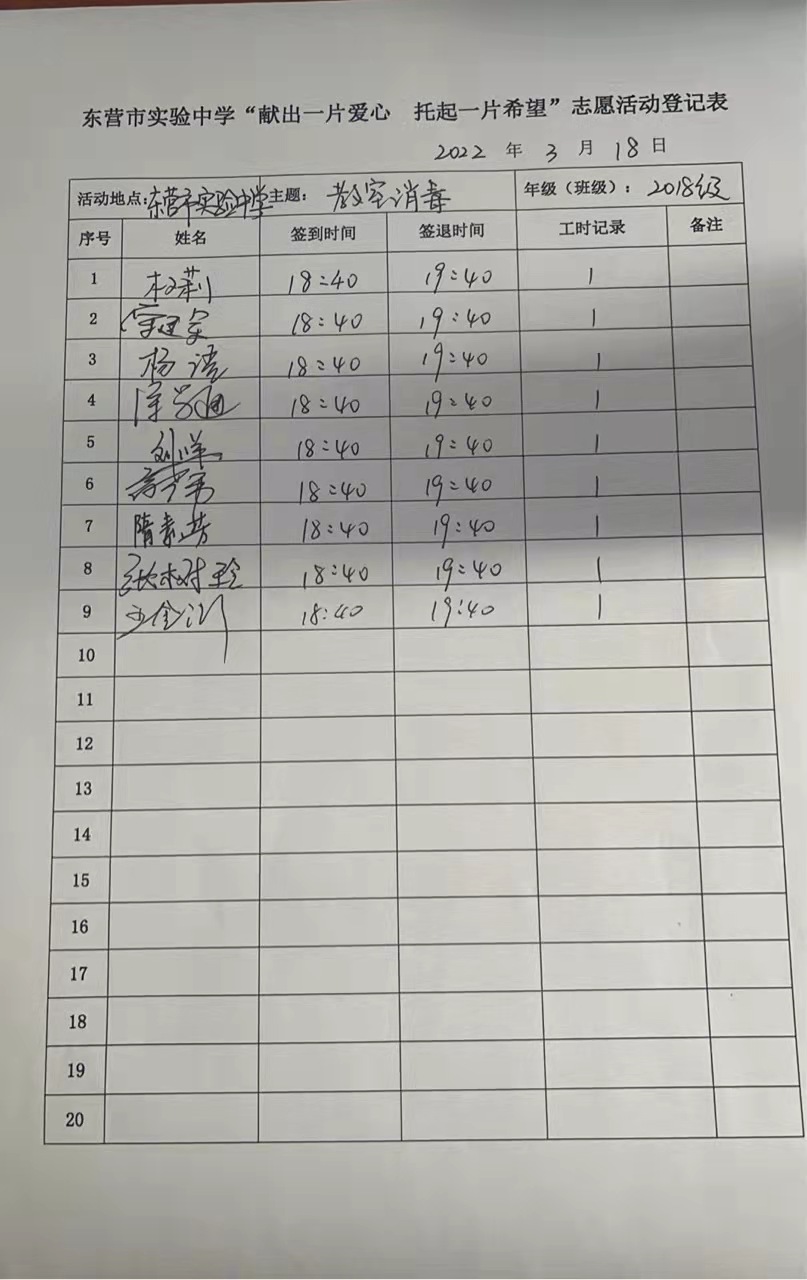 东营市实验中学“献出一片爱心 托起一片希望”志愿活动登记表
2022 年 3 月 18 日
活动地点:东营市实验中学 主题: 教室消毒 年级（班级）: 2018级
序号 姓名 签到时间 签退时间 工时记录 备注
1 18:40 19:40 1
2 18:40 19:40 1
3 杨 18:40 19:40 1
4 18:40 19:40 1
5 18:40 19:40 1
6 18:40 19:40 1
7 隋素芳 18:40 19:40 1
8 18:40 19:40 1
9 18:40 19:40 1
10
11
12
13
14
15
16
17
18
19
20